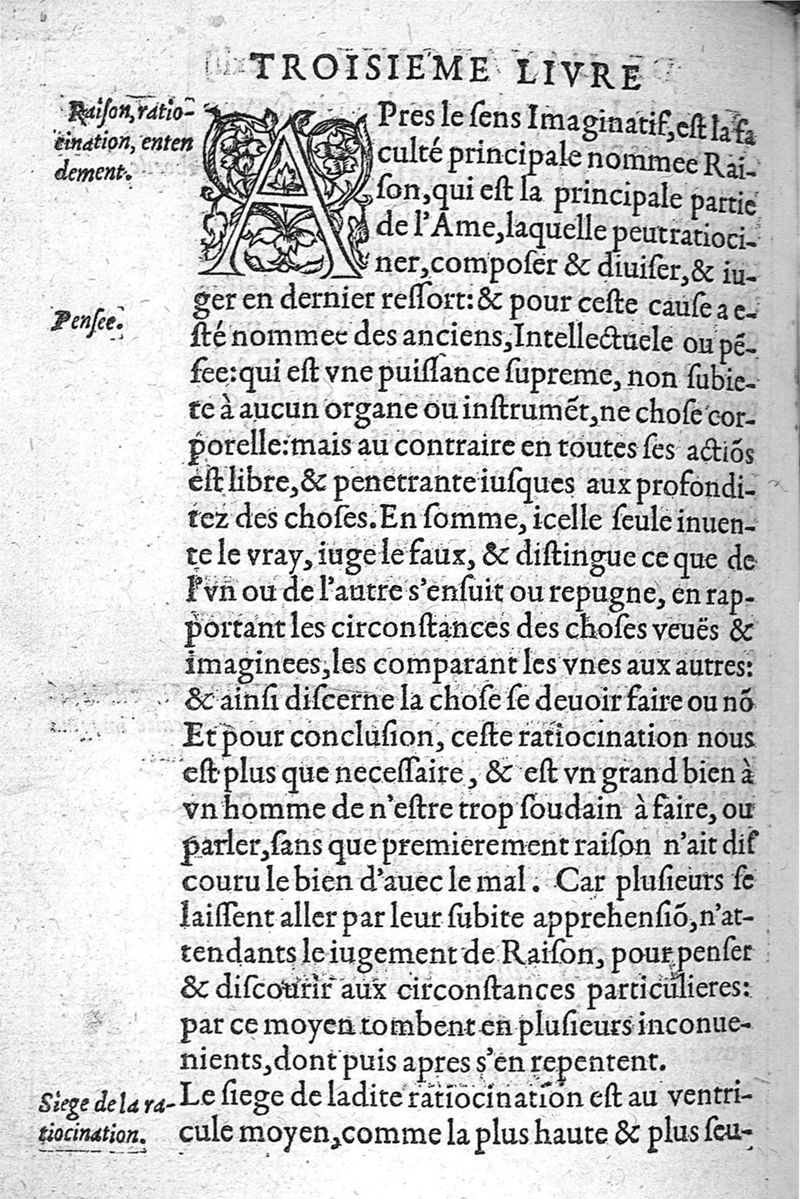 TROISIEME LIVRE
Raison, ratio-
cination, enten
dement.
APres le sens Imaginatif, est la fa
culté principale nommee Rai-
son, qui est la principale partie
de l'Ame, laquelle peut ratioci-
ner, composer & diuiser, & iu-
ger en dernier ressort: & pour ceste cause a e-
Pensee.
sté nommee des anciens, Intellectuele ou pē-
see: qui est vne puissance supreme, non subie-
te à aucun organe ou instrumēt, ne chose cor-
porelle: mais au contraire en toutes ses actiōs
est libre, & penetrante iusques aux profondi-
tez des choses. En somme, icelle seule inuen-
te le vray, iuge le faux, & distingue ce que de
l'vn ou de l'autre s'ensuit ou repugne, en rap-
portant les circonstances des choses veuës &
imaginees, les comparant les vnes aux autres:
& ainsi discerne la chose se deuoir faire ou nō
Et pour conclusion, ceste ratiocination nous
est plus que necessaire, & est vn grand bien à
vn homme de n'estre trop soudain à faire, ou
parler, sans que premierement raison n'ait dis
couru le bien d'auec le mal. Car plusieurs se
laissent aller par leur subite apprehensiō, n'at-
tendants le iugement de Raison, pour penser
& discourir aux circonstances particulieres:
par ce moyen tombent en plusieurs inconue-
nients, dont puis apres s'en repentent.
Siege de la ra-
tiocination.
Le siege de ladite ratiocination est au ventri-
cule moyen, comme la plus haute & plus seu-